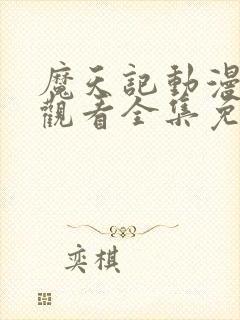 魔天記動漫
觀看全集免
奕棋